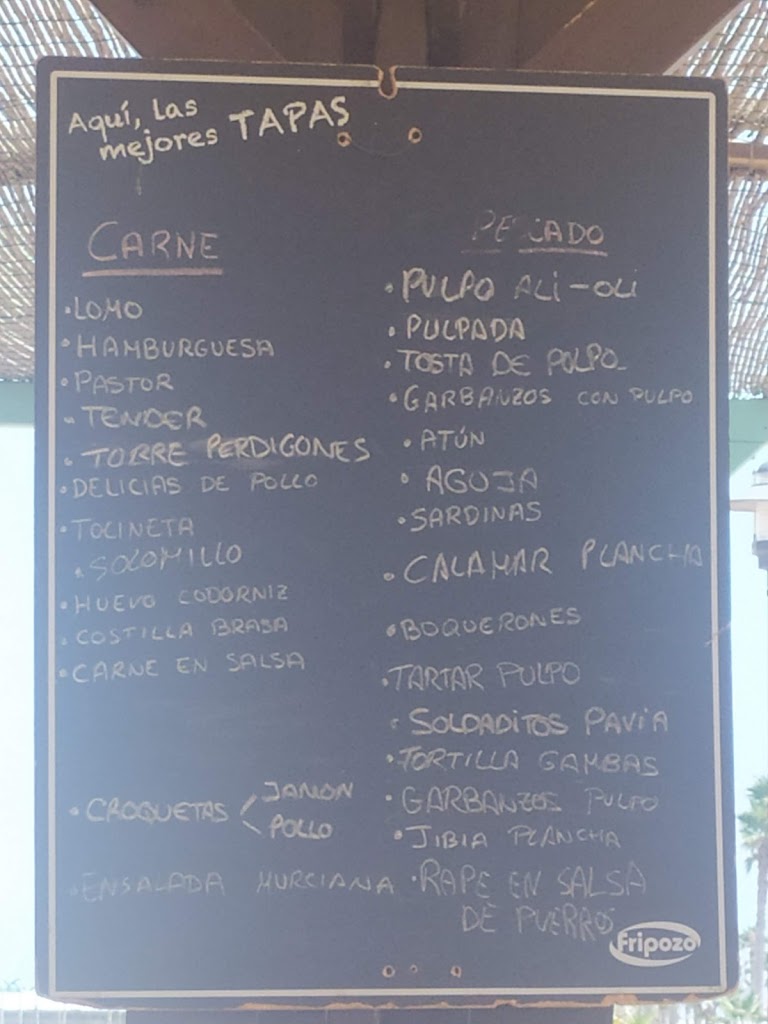 Aquí, las
mejores TAPAS
CARNE
• LOMO
• HAMBURGUESA
• PASTOR
• TENDER
• TORRE PERDIGONES
• DELICIAS DE POLLO
• TOCINETA
• SOLOMILLO
• HUEVO CODORNIZ
• COSTILLA BRASA
• CARNE EN SALSA
• CROQUETAS < JAMON
POLLO
• ENSALADA MURCIANA
PESCADO
• PULPO ALI-OLI
• PULPADA
• TOSTA DE POLPO
• GARBANZOS CON PULPO
• ATÚN
• AGUJA
• SARDINAS
• CALAMAR PLANCHA
• BOQUERONES
• TARTAR PULPO
• SOLDADITOS PAVIA
• TORTILLA GAMBAS
• GARBANZOS PULPO
• JIBIA PLANCHA
• RAPE EN SALSA
DE PUERROS
Fripozo